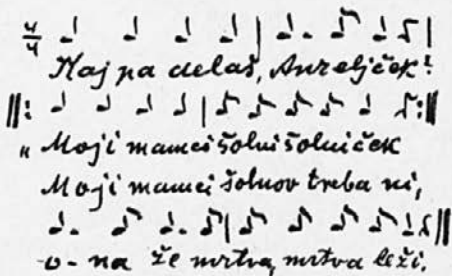 4/4
Kaj pa delaš, Anzeljček?
„Moji mamci šolni šolniček
Moji mamci šolnov treba ni,
o-na že mrtva, mrtva leži.